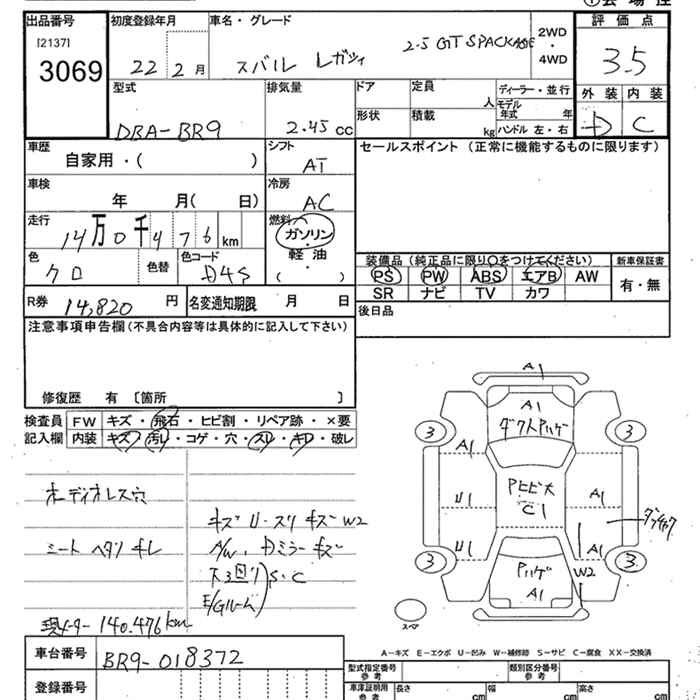 ① 会場控
出品番号
[2137]
3069
初度登録年月
22 2月
車名・グレード
スバル レガシィ 2.5 GT SPACKAGE
2WD
・
4WD
評価点
3.5
外装 内装
D C
型式
DBA-BR9
排気量
2.45 cc
ドア
形状
定員
人
積載
kg
ディーラー・並行
モデル年式 年
ハンドル 左・右
車歴
自家用・( )
シフト
AT
セールスポイント(正常に機能するものに限ります)
車検
年 月( 日)
冷房
AC
走行
14万0千476 km
燃料
ガソリン
軽油
( )
色
クロ
色替
色コード
D4S
装備品(純正品に限り○をつけてください)
PS PW ABS エアB AW
SR ナビ TV カワ
新車保証書
有・無
R券 14,820 円
名変通知期限 月 日
後日品
注意事項申告欄(不具合内容等は具体的に記入して下さい)
修復歴 有 〔箇所 〕
検査員記入欄
FW キズ・飛石・ヒビ割・リペア跡・×要
内装 キズ・汚レ・コゲ・穴・スレ・キレ・破レ
オーディオレス穴
シート ヘタリ キレ
キズ U・スリ キズ W2
A/W、Dミラー キズ
下廻り
E/Gルーム
S・C
現メーター 140.476km
A1
A1
ダクトハゲ
3
3
A1
U1
U1
Pヒビ大
C1
A1
A1
W2
Pハゲ
A1
3
3
スペア
A-キズ E-エクボ U-凹み W-補修跡 S-サビ C-腐食 XX-交換済
車台番号
BR9-018372
登録番号
型式指定番号
参考
類別区分番号
参考
車庫証明用
参考
長さ cm
幅 cm
高さ cm